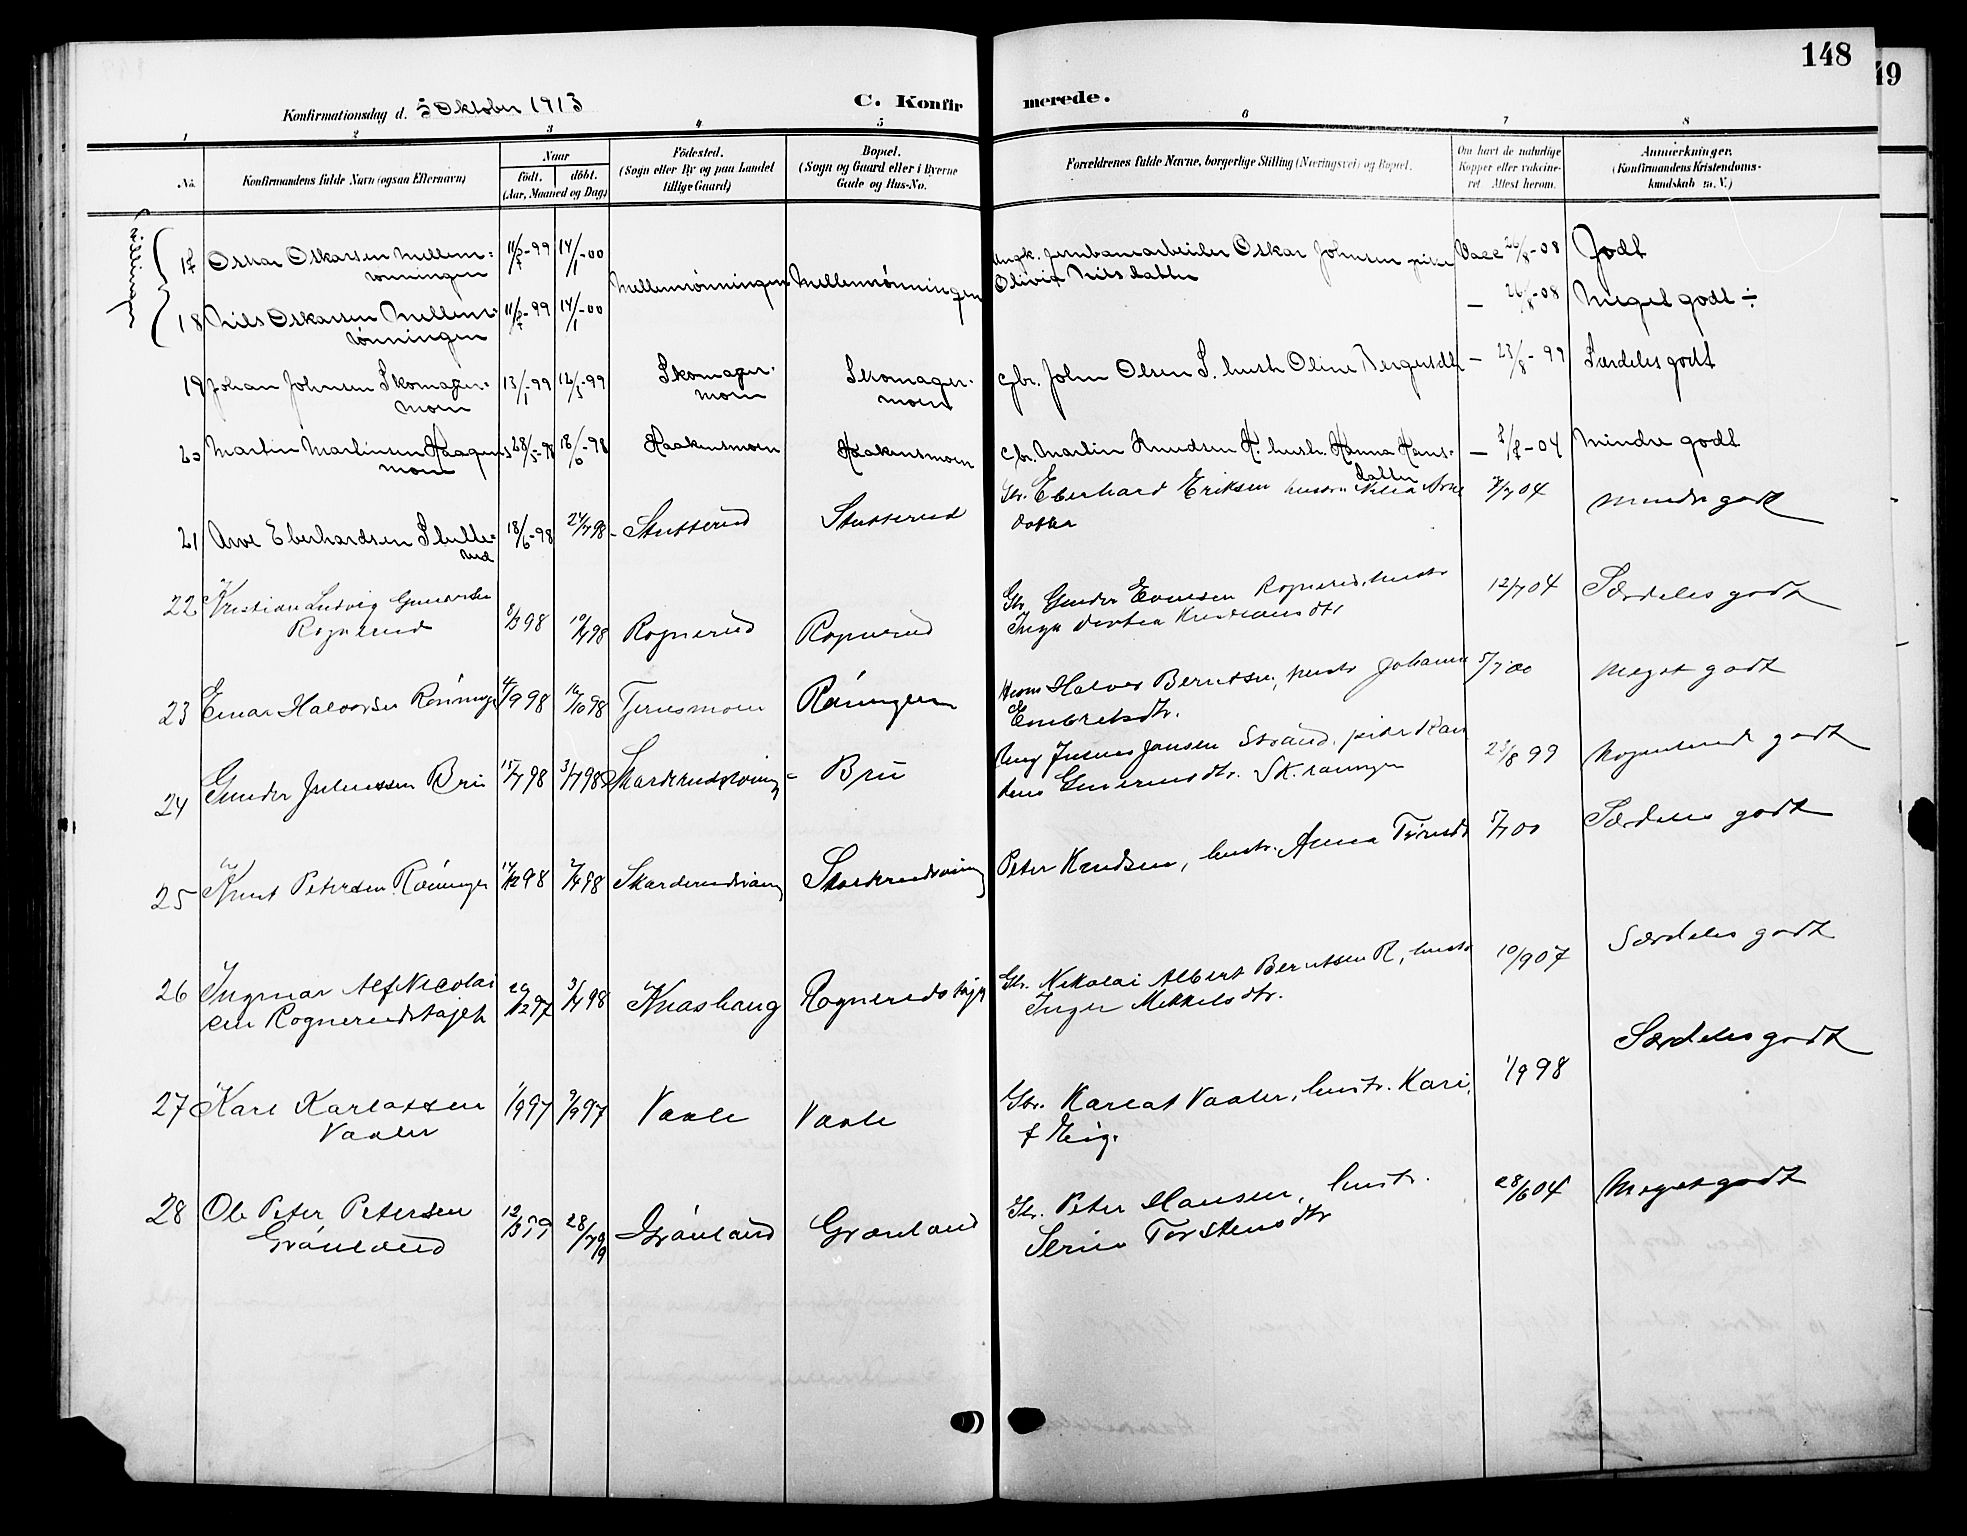 148
49
Konfirmationsdag d. 5 Oktober 1913
C. Konfirmerede.
1 2 3 4 5 6 7 8
No.
Konfirmandens fulde Navn (ogsaa Efternavn)
Naar
født. døbt.
(Aar, Maaned og Dag)
Fødested.
(Sogn eller By og paa Landet
tillige Gaard)
Bopæl.
(Sogn og Gaard eller i Byerne
Gade og Hus-No.
Forældrenes fulde Navne, borgerlige Stilling (Næringsvei) og Bopæl.
Om havt de naturlige
Kopper eller vaccine-
ret Attest herom.
Anmerkninger.
(Konfirmandens Kristendoms-
kundskab m. V.)
Tvillinger
17 Oskar Oskarsen Mellem-
rønningen
-99 14/1-00
Mellemrønningen Mellemrønningen
Ungk. jernbanearbeider Oskar Johnsen pike
Olivia Nilsdatter
Vacc -08 Godt
18 Nils Oskarsen Mellem-
rønningen
-99 14/1-00
— -08 Meget godt ÷
19 Johan Johnsen Skomager-
moen
13/1-99 12/3-99
Skomager-
moen
Skomager-
moen
Gbr. John Olsen S. hustr Oline Bergersdtr
— 23/8-99 Særdeles godt
20 Martin Martinsen Haagens
moen
28/5-98 18/6-98
Haakensmoen Haakensmoen
Gbr. Martin Knudsen H. hustr. Hanna Hans-
datter
— -04 Mindre godt
21 Arve Eberhardsen Stutte-
rud
18/6-98 24/7 98
Stutterud Stutterud
Gbr. Eberhard Eriksen hustru Arne
datter
7/7 04 Mindre godt
22 Kristian Ludvig Gundersen
Rognerud
98 98
Rognerud Rognerud
Gbr. Gunder Evensen Rognerud, hustr
Inga Dortea Kristiansdtr
12/7 04 Særdeles godt
23 Einar Halvorsen Rönningen
4/9 98 16/10 98
Tjernsmoen Röningen
Halvor Berntsen, hustr Johanne
Embretsdtr.
5/7 00 Meget godt
24 Gunder Juliussen Bru
15/7 98 98
Skarderudsvang - Bru
Ung Julius Jansen Strand. pike
Gunerusdtr.
23/8 99 godt
25 Knut Petersen Röningen
98 98
Skarderudsvang Skarderudsvang
Peter Knudsen, hustr. Anna
00 Særdeles godt
26 Ingmar Alf Nicolai
sen Rognerudshøgst
29/12 97 98
Knashaug
Gbr. Nikolai Albert Berntsen R, hustr
Inger Mikkelsdtr.
10/9 07 Særdeles godt
27 Karl Karlotsen
Vaaler
1/9 97 97
Vaale Vaale
Gbr. Karlot Vaaler, hustr. Kari,
1/9 98 Særdeles godt
28 Ole Peter Petersen
Grönland
99 28/7 99
Grönland Grønland
Gbr. Peter Hansen, hustr.
Serine Torstensdtr
28/6 04 Meget godt